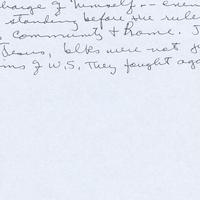 charge of himself -- even
standing before the rule
community & Rome. J
Jesus, blks were not j
ims of W.S. They fought aga